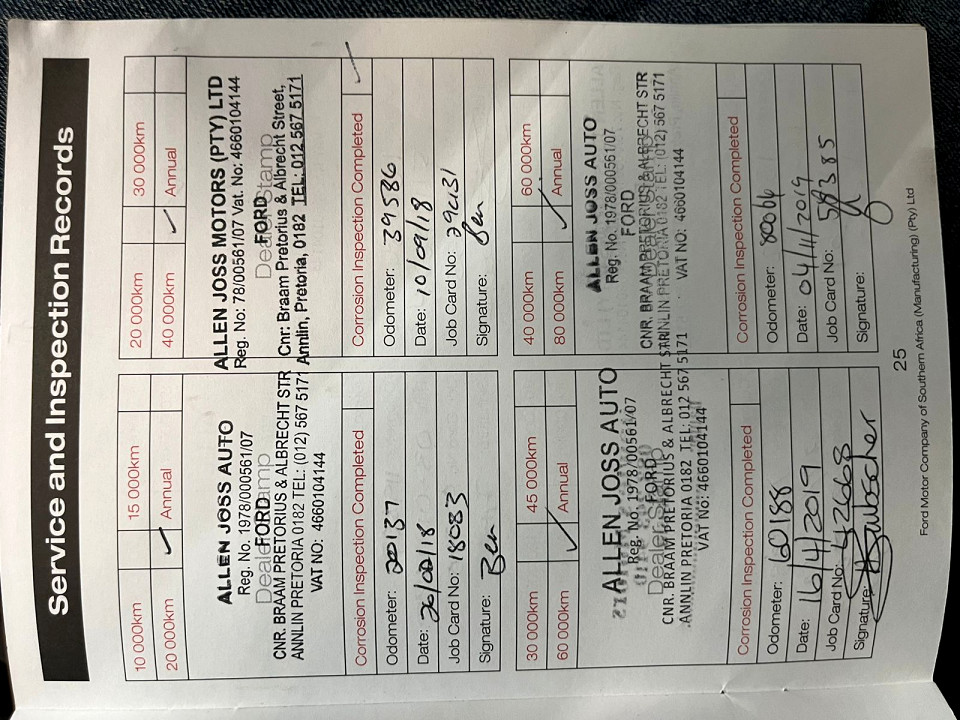 Service and Inspection Records
10 000km 15 000km
20 000km ✓ Annual
Dealer Stamp
ALLEN JOSS AUTO
Reg. No. 1978/000561/07
FORD
CNR. BRAAM PRETORIUS & ALBRECHT STR
ANNLIN PRETORIA 0182 TEL: (012) 567 5171
VAT NO: 4660104144
Corrosion Inspection Completed
Odometer: 20137
Date:
Job Card No: 18083
Signature: Ben
20 000km 30 000km
40 000km ✓ Annual
Dealer Stamp
ALLEN JOSS MOTORS (PTY) LTD
Reg. No: 78/00561/07 Vat. No: 4660104144
FORD
Cnr: Braam Pretorius & Albrecht Street,
Annlin, Pretoria, 0182 TEL: 012 567 5171
Corrosion Inspection Completed ✓
Odometer: 39586
Date: 10/09/18
Job Card No:
Signature: Ben
30 000km 45 000km
60 000km ✓ Annual
Dealer Stamp
ALLEN JOSS AUTO
Reg. No. 1978/000561/07
FORD
CNR. BRAAM PRETORIUS & ALBRECHT STR
ANNLIN PRETORIA 0182 TEL: 012 567 5171
VAT No: 4660104144
Corrosion Inspection Completed
Odometer: 60188
Date: 16/4/2019
Job Card No: 42668
Signature:
40 000km 60 000km
80 000km ✓ Annual
Dealer Stamp
ALLEN JOSS AUTO
Reg. No. 1978/000561/07
FORD
CNR. BRAAM PRETORIUS & ALBRECHT STR
ANNLIN PRETORIA 0182 TEL: (012) 567 5171
VAT NO: 4660104144
Corrosion Inspection Completed
Odometer: 80066
Date: 04/11/2019
Job Card No: 58385
Signature:
25
Ford Motor Company of Southern Africa (Manufacturing) (Pty) Ltd